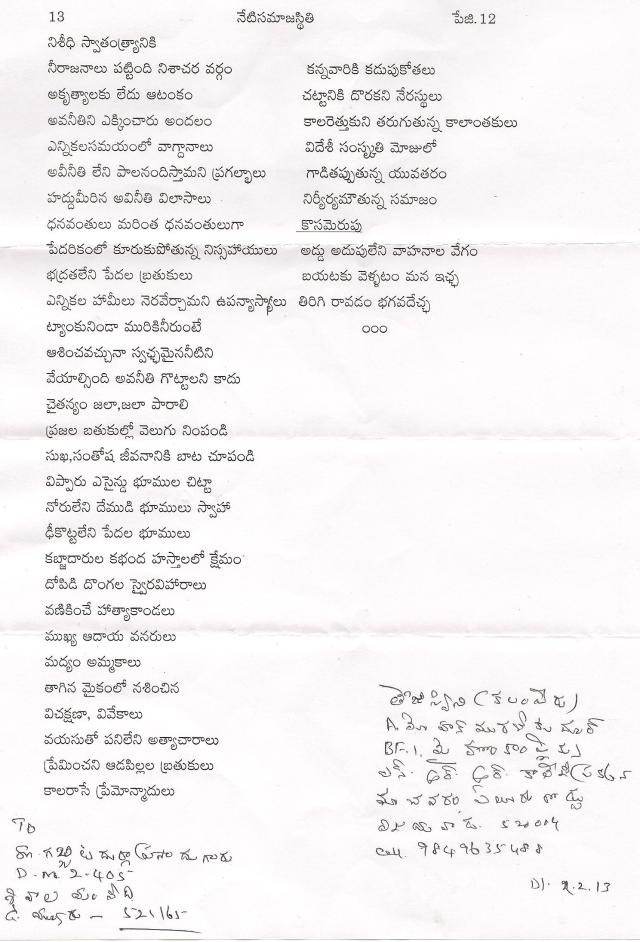 13 నేటిసమాజస్థితి పేజి.12
నిశీధి స్వాతంత్ర్యానికి
నీరాజనాలు పట్టింది నిశాచర వర్గం
అకృత్యాలకు లేదు ఆటంకం
అవనీతిని ఎక్కించారు అందలం
ఎన్నికలసమయంలో వాగ్దానాలు
అవీనీతి లేని పాలనందిస్తామని ప్రగల్భాలు
హద్దుమీరిన అవినీతి విలాసాలు
ధనవంతులు మరింత ధనవంతులుగా
పేదరికంలో కూరుకుపోతున్న నిస్సహాయులు
భద్రతలేని పేదల బ్రతుకులు
ఎన్నికల హామీలు నెరవేర్చామని ఉపన్యాస్యాలు
ట్యాంకునిండా మురికినీరుంటే
ఆశించవచ్చునా స్వఛ్ఛమైననీటిని
వేయాల్సింది అవనీతి గొట్టాలని కాదు
చైతన్యం జలా,జలా పారాలి
ప్రజల బతుకుల్లో వెలుగు నింపండి
సుఖ,సంతోష జీవనానికి బాట చూపండి
విప్పారు ఎసైన్డు భూముల చిట్టా
నోరులేని దేముడి భూములు స్వాహా
ఢీకొట్టలేని పేదల భూములు
కబ్జాదారుల కభంద హస్తాలలో క్షేమం
దోపిడి దొంగల స్వైరవిహారాలు
వణికించే హాత్యాకాండలు
ముఖ్య ఆదాయ వనరులు
మద్యం అమ్మకాలు
తాగిన మైకంలో నశించిన
విచక్షణా, వివేకాలు
వయసుతో పనిలేని అత్యాచారాలు
ప్రేమించని ఆడపిల్లల బ్రతుకులు
కాలరాసే ప్రేమోన్మాదులు
కన్నవారికి కడుపుకోతలు
చట్టానికి దొరకని నేరస్థులు
కాలరెత్తుకుని తరుగుతున్న కాలాంతకులు
విదేశీ సంస్కృతి మోజులో
గాడితప్పుతున్న యువతరం
నిర్యీర్యమౌతున్న సమాజం
కొసమెరుపు
అడ్డు అదుపులేని వాహనాల వేగం
బయటకు వెళ్ళటం మన ఇఛ్ఛ
తిరిగి రావడం భగవదేచ్ఛ
ooo
తేజస్విని (కలంపేరు)
A.
BF.1,
ఎస్. ఆర్. ఆర్.
మాచవరం ఏలూరు రోడ్డు
విజయవాడ. 520004
Cell. 9849635488
Dt. 2.2.13
TO
D. 2-405
521165